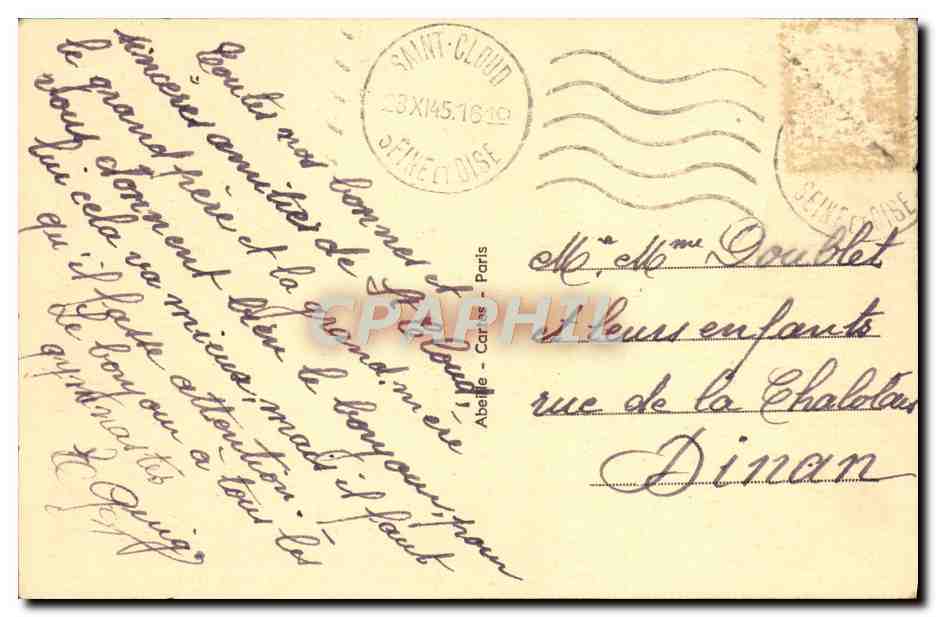 SAINT-CLOUD
28 XI 45. 16 10
SEINE ET OISE
SEINE ET OISE
St Cloud
Toutes nos bonnes et
sincères amitiés de
le grand père et la grand. mère
vous donnent bien le bonjour, pour
lui cela va mieux, mais il faut
qu'il fasse attention.
Le bonjour à tous les
gymnastes
Abeille - Cartes - Paris
CPAPHIL
Mr. Mme Doublet
et leurs enfants
rue de la Chalotais
Dinan